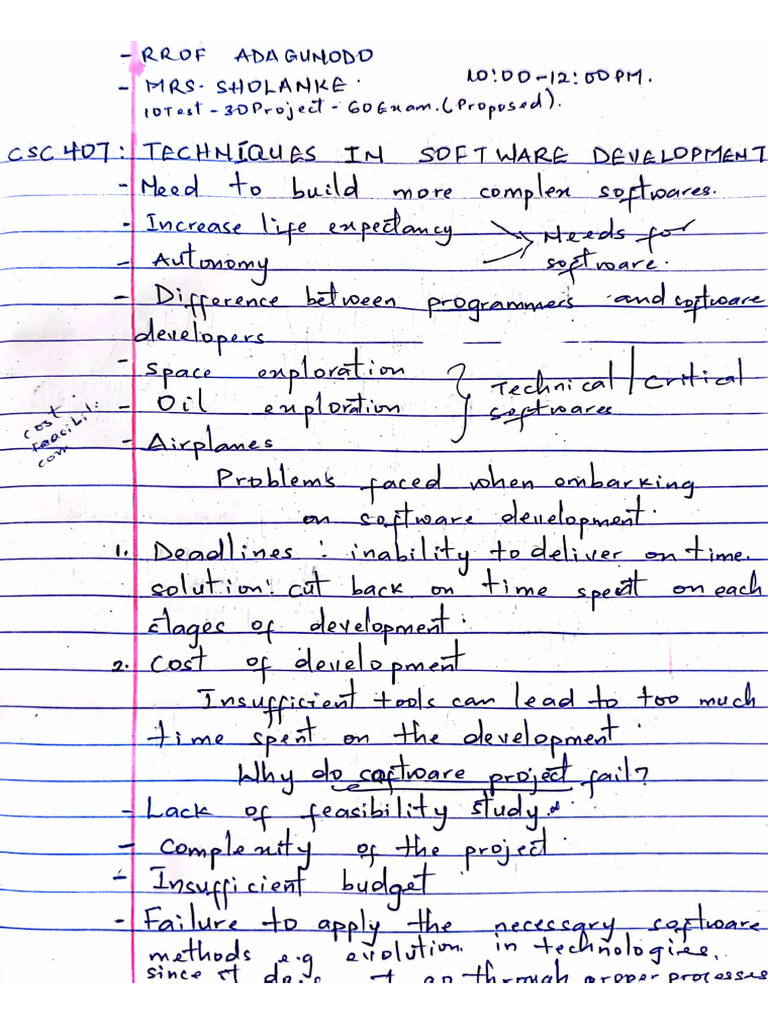 - RROF ADAGUNODO
- MRS. SHOLANKE. 10:00-12:00PM.
10Test - 30Project - 60Exam.(Proposed).
CSC 407: TECHNIQUES IN SOFTWARE DEVELOPMENT
- Need to build more complex softwares.
- Increase life expectancy
- Autonomy
Needs for
software.
- Difference between programmers and software
developers
- Space exploration
- Oil exploration
- Airplanes
Technical/Critical
softwares
cost.
Feasibil.
com
Problems faced when embarking
on software development.
1. Deadlines: inability to deliver on time.
solution: cut back on time spent on each
stages of development.
2. Cost of development
Insufficient tools can lead to too much
time spent on the development.
Why do software project fail?
- Lack of feasibility study.
- Complexity of the project.
- Insufficient budget
- Failure to apply the necessary software
methods e.g evolution in technologies,
since it through proper processes